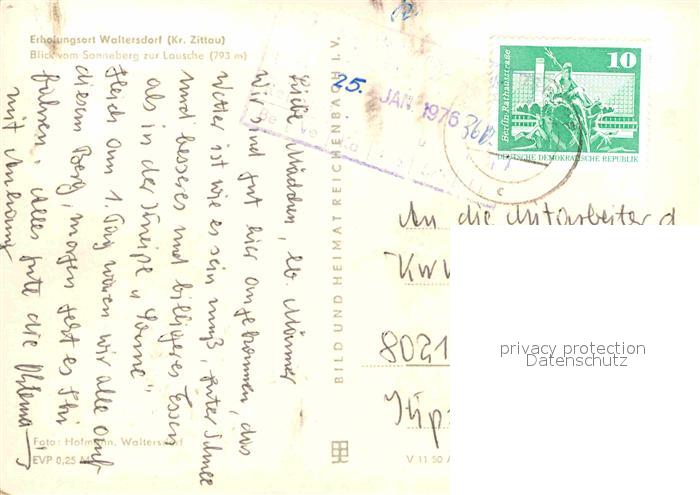 Erholungsort Waltersdorf (Kr. Zittau)
Blick vom Sonneberg zur Lausche (793 m)
Liebe Mädchen, lb. Männer
Wir sind gut hier angekommen, das
Wetter ist wie es sein muß, guter Schnee
und besseres und billigeres Essen
als in der Kneipe „Sonne"
Gleich am 1. Tag waren wir alle auf
diesem Berg, morgen geht es Ski
fahren. Alles Gute die
mit Anhang
Foto: Hofmann, Waltersdorf
EVP 0,25 M
BILD UND HEIMAT REICHENBACH I. V.
V 11 50
25. JAN 1976
10
Berlin, Rathausstraße
DEUTSCHE DEMOKRATISCHE REPUBLIK
An die Mitarbeiter d
8021
privacy protection
Datenschutz